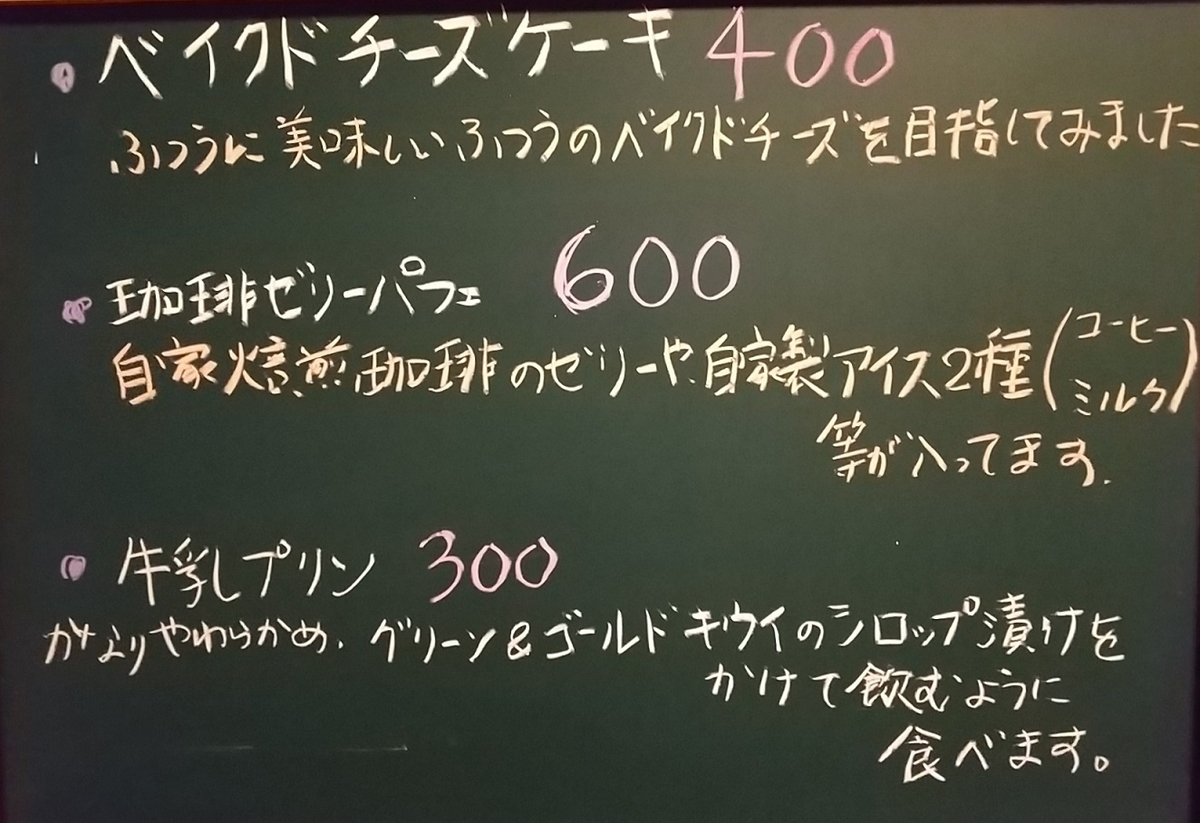 ベイクドチーズケーキ 400
ふつうに美味しいふつうのベイクドチーズを目指してみました
珈琲ゼリーパフェ 600
自家焙煎珈琲のゼリーや自家製アイス2種(コーヒー ミルク)
等が入ってます.
牛乳プリン 300
かなりやわらかめ. グリーン&ゴールドキウイのシロップ漬けを
かけて飲むように
食べます。